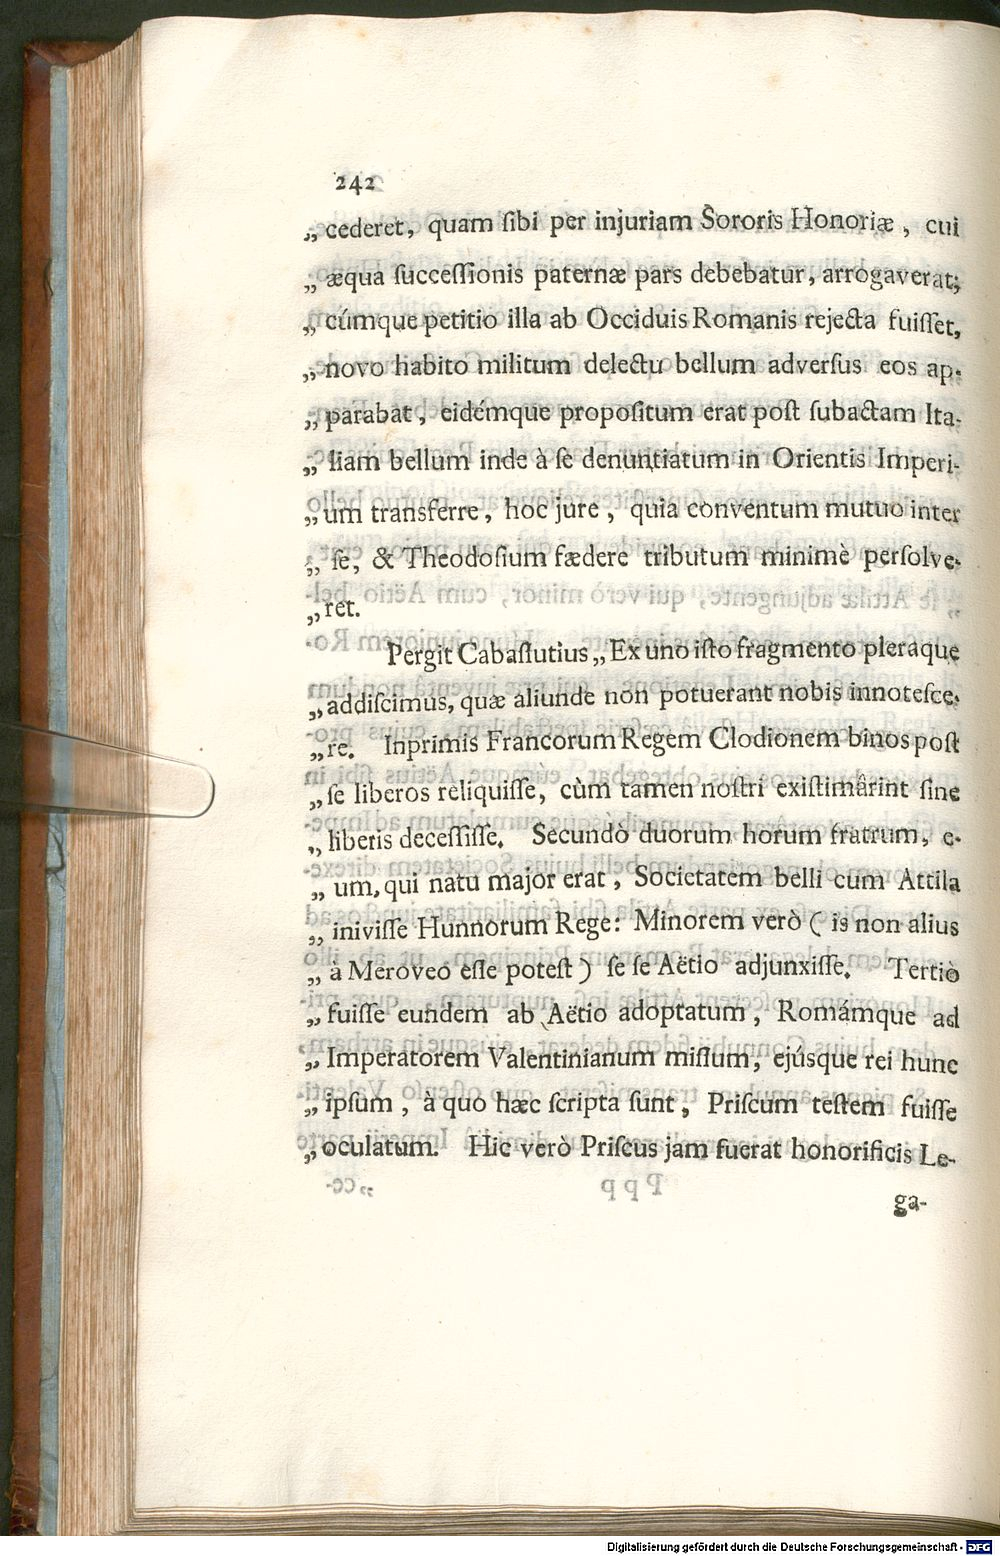 242
„ cederet, quam ſibi per injuriam Sororis Honoriæ, cui
„ æqua ſucceſſionis paternæ pars debebatur, arrogaverat;
„ cúmque petitio illa ab Occiduis Romanis rejecta fuiſſet,
„ novo habito militum delectu bellum adverſus eos ap-
„ parabat, eidémque propoſitum erat poſt ſubactam Ita-
„ liam bellum inde à ſe denuntiatum in Orientis Imperi-
„ um transferre, hoc jure, quia conventum mutuo inter
„ ſe, & Theodoſium fædere tributum minimè perſolve-
„ ret.
Pergit Cabaſſutius „ Ex uno iſto fragmento pleraque
„ addiſcimus, quæ aliunde non potuerant nobis innoteſce-
„ re. Inprimis Francorum Regem Clodionem binos poſt
„ ſe liberos reliquiſſe, cùm tamen noſtri exiſtimârint ſine
„ liberis deceſſiſſe. Secundò duorum horum fratrum, e-
„ um, qui natu major erat, Societatem belli cum Attila
„ iniviſſe Hunnorum Rege: Minorem verò ( is non alius
„ à Meroveo eſſe poteſt ) ſe ſe Aëtio adjunxiſſe. Tertiò
„ fuiſſe eundem ab Aëtio adoptatum, Romámque ad
„ Imperatorem Valentinianum miſſum, ejúsque rei hunc
„ ipſum, à quo hæc ſcripta ſunt, Priſcum teſtem fuiſſe
„ oculatum. Hic verò Priſcus jam fuerat honorificis Le-
ga-
Digitalisierung gefördert durch die Deutsche Forschungsgemeinschaft - DFG